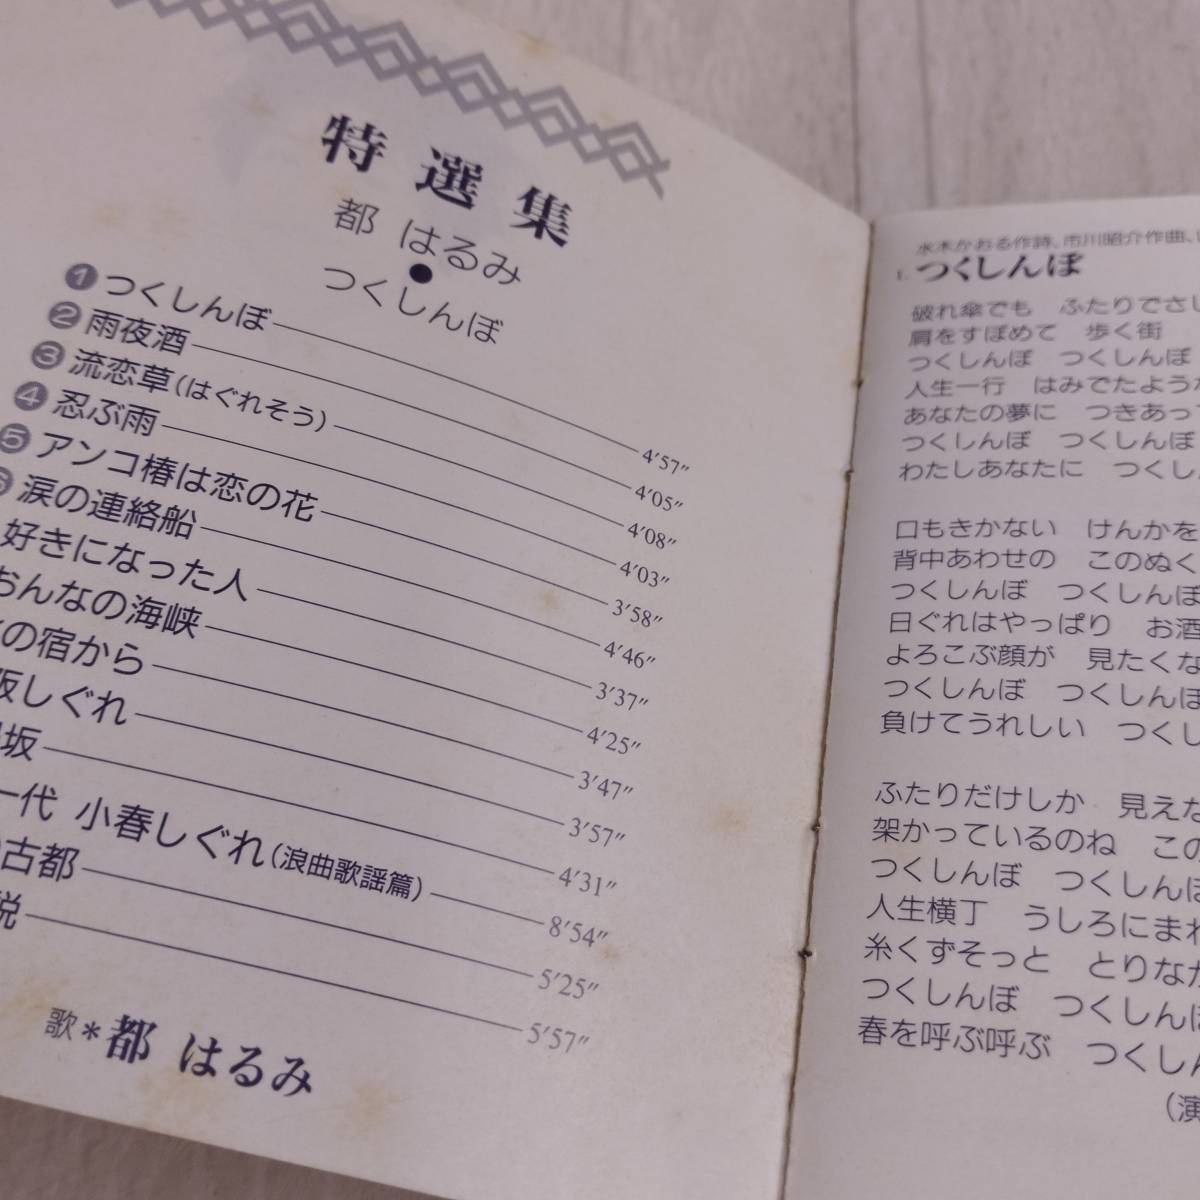 特選集
都 はるみ
●
つくしんぼ
❶つくしんぼ 4′57″
❷雨夜酒 4′05″
❸流恋草(はぐれそう) 4′08″
❹忍ぶ雨 4′03″
❺アンコ椿は恋の花 3′58″
❻涙の連絡船 4′46″
好きになった人 3′37″
おんなの海峡 4′25″
の宿から 3′47″
阪しぐれ 3′57″
坂 4′31″
一代 小春しぐれ(浪曲歌謡篇) 8′54″
古都 5′25″
5′57″
歌*都 はるみ
水木かおる作詩、市川昭介作曲、
1. つくしんぼ
破れ傘でも ふたりでさし
肩をすぼめて 歩く街
つくしんぼ つくしんぼ
人生一行 はみでたような
あなたの夢に つきあっ
つくしんぼ つくしんぼ
わたしあなたに つくし
口もきかない けんかを
背中あわせの このぬく
つくしんぼ つくしんぼ
日ぐれはやっぱり お酒
よろこぶ顔が 見たくな
つくしんぼ つくしんぼ
負けてうれしい つくし
ふたりだけしか 見えな
架かっているのね この
つくしんぼ つくしんぼ
人生横丁 うしろにまわ
糸くずそっと とりなが
つくしんぼ つくしんぼ
春を呼ぶ呼ぶ つくしん
(演